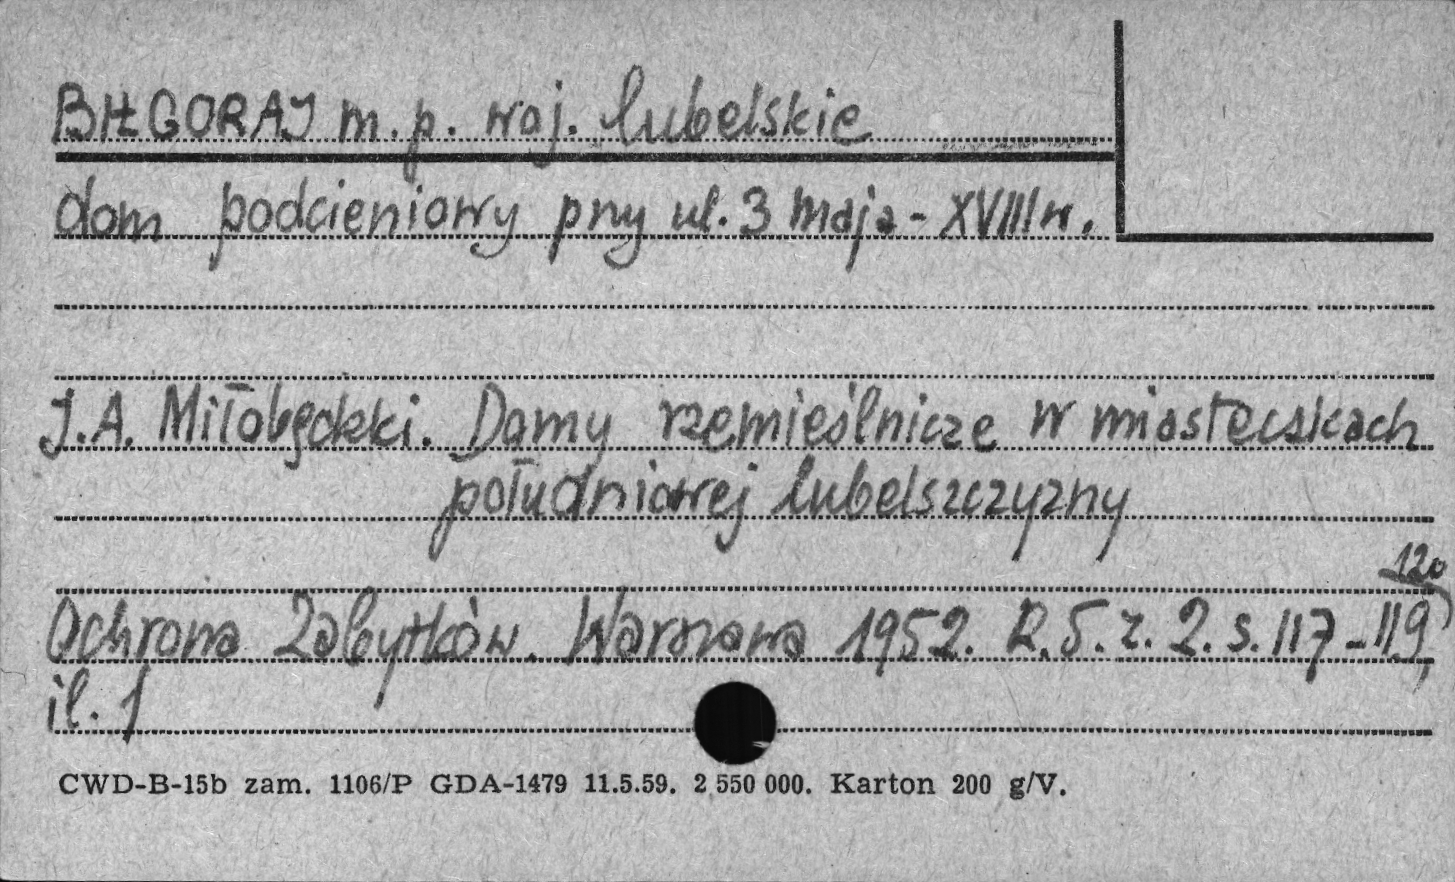 BIŁGORAJ m. p. woj. lubelskie
dom podcieniowy przy ul. 3 maja - XVIII w.
J.A. Miłobędzki. Domy rzemieślnicze w miasteczkach
południowej lubelszczyzny
120
Ochrona Zabytków. Warszawa 1952. R. 5. z. 2. s. 117-119,
il. 1
CWD-B-15b zam. 1106/P GDA-1479 11.5.59. 2 550 000. Karton 200 g/V.